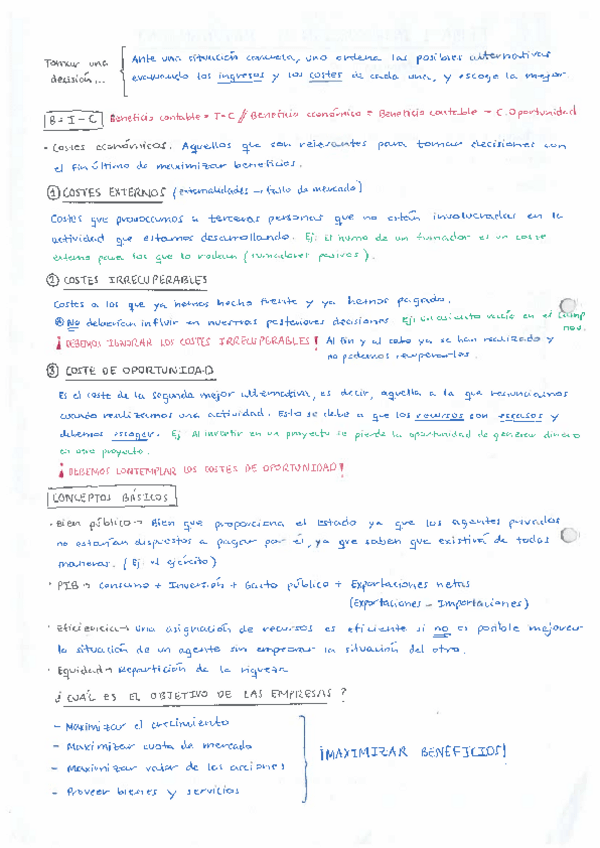 Tomar una decisión...
Ante una situación concreta, uno ordena las posibles alternativas
evaluando los ingresos y los costes de cada una, y escoge la mejor.
B = I - C Beneficio contable = I-C // Beneficio económico = Beneficio contable - C. Oportunidad
· Costes económicos. Aquellos que son relevantes para tomar decisiones con
el fin último de maximizar beneficios.
① COSTES EXTERNOS (externalidades → fallo de mercado)
Costes que provocamos a terceras personas que no están involucradas en la
actividad que estamos desarrollando. Ej: El humo de un fumador es un coste
externo para los que lo rodean (fumadores pasivos).
② COSTES IRRECUPERABLES
Costes a los que ya hemos hecho frente y ya hemos pagado.
No deberían influir en nuestras posteriores decisiones. Ej: Un asiento vacío en el Camp
nou.
¡DEBEMOS IGNORAR LOS COSTES IRRECUPERABLES! Al fin y al cabo ya se han realizado y
no podemos recuperarlos.
③ COSTE DE OPORTUNIDAD
Es el coste de la segunda mejor alternativa, es decir, aquella a la que renunciamos
cuando realizamos una actividad. Esto se debe a que los recursos son escasos y
debemos escoger. Ej Al invertir en un proyecto se pierde la oportunidad de generar dinero
en otro proyecto.
¡DEBEMOS CONTEMPLAR LOS COSTES DE OPORTUNIDAD!
CONCEPTOS BÁSICOS
· Bien público → Bien que proporciona el Estado ya que los agentes privados
no estarían dispuestos a pagar por él, ya que saben que existirá de todas
maneras. (Ej: el ejército)
· PIB → Consumo + Inversión + Gasto público + Exportaciones netas
(Exportaciones - Importaciones)
· Eficiencia → Una asignación de recursos es eficiente si no es posible mejorar
la situación de un agente sin empeorar la situación del otro.
· Equidad → Repartición de la riqueza
¿CUÁL ES EL OBJETIVO DE LAS EMPRESAS?
- Maximizar el crecimiento
- Maximizar cuota de mercado
- Maximizar valor de las acciones
- Proveer bienes y servicios
¡MAXIMIZAR BENEFICIOS!